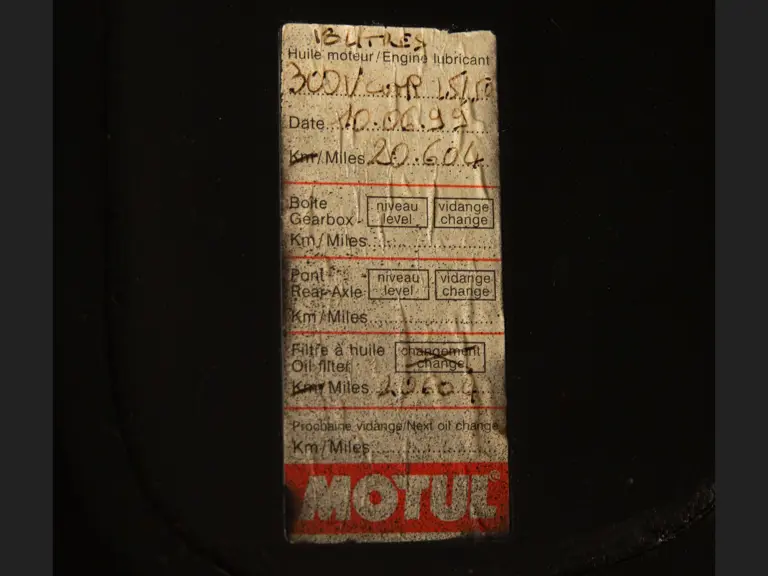 18 LITRES
Huile moteur/Engine lubricant
300V COMP 15/50
Date 10.06.99
Km/Miles 20.604
Boîte niveau vidange
Gearbox level change
Km/Miles
Pont niveau vidange
Rear-Axle level change
Km/Miles
Filtre à huile changement
Oil filter change
Km/Miles 20604
Prochaine vidange/Next oil change
Km/Miles
MOTUL